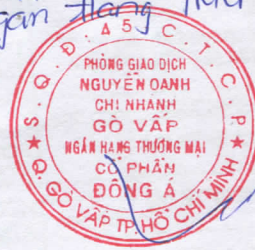 S.Q.Đ:45C.T.C.P
PHÒNG GIAO DỊCH
NGUYỄN OANH
CHI NHÁNH
GÒ VẤP
NGÂN HÀNG THƯƠNG MẠI
CỔ PHẦN
ĐÔNG Á
Q. GÒ VẤP TP. HỒ CHÍ MINH